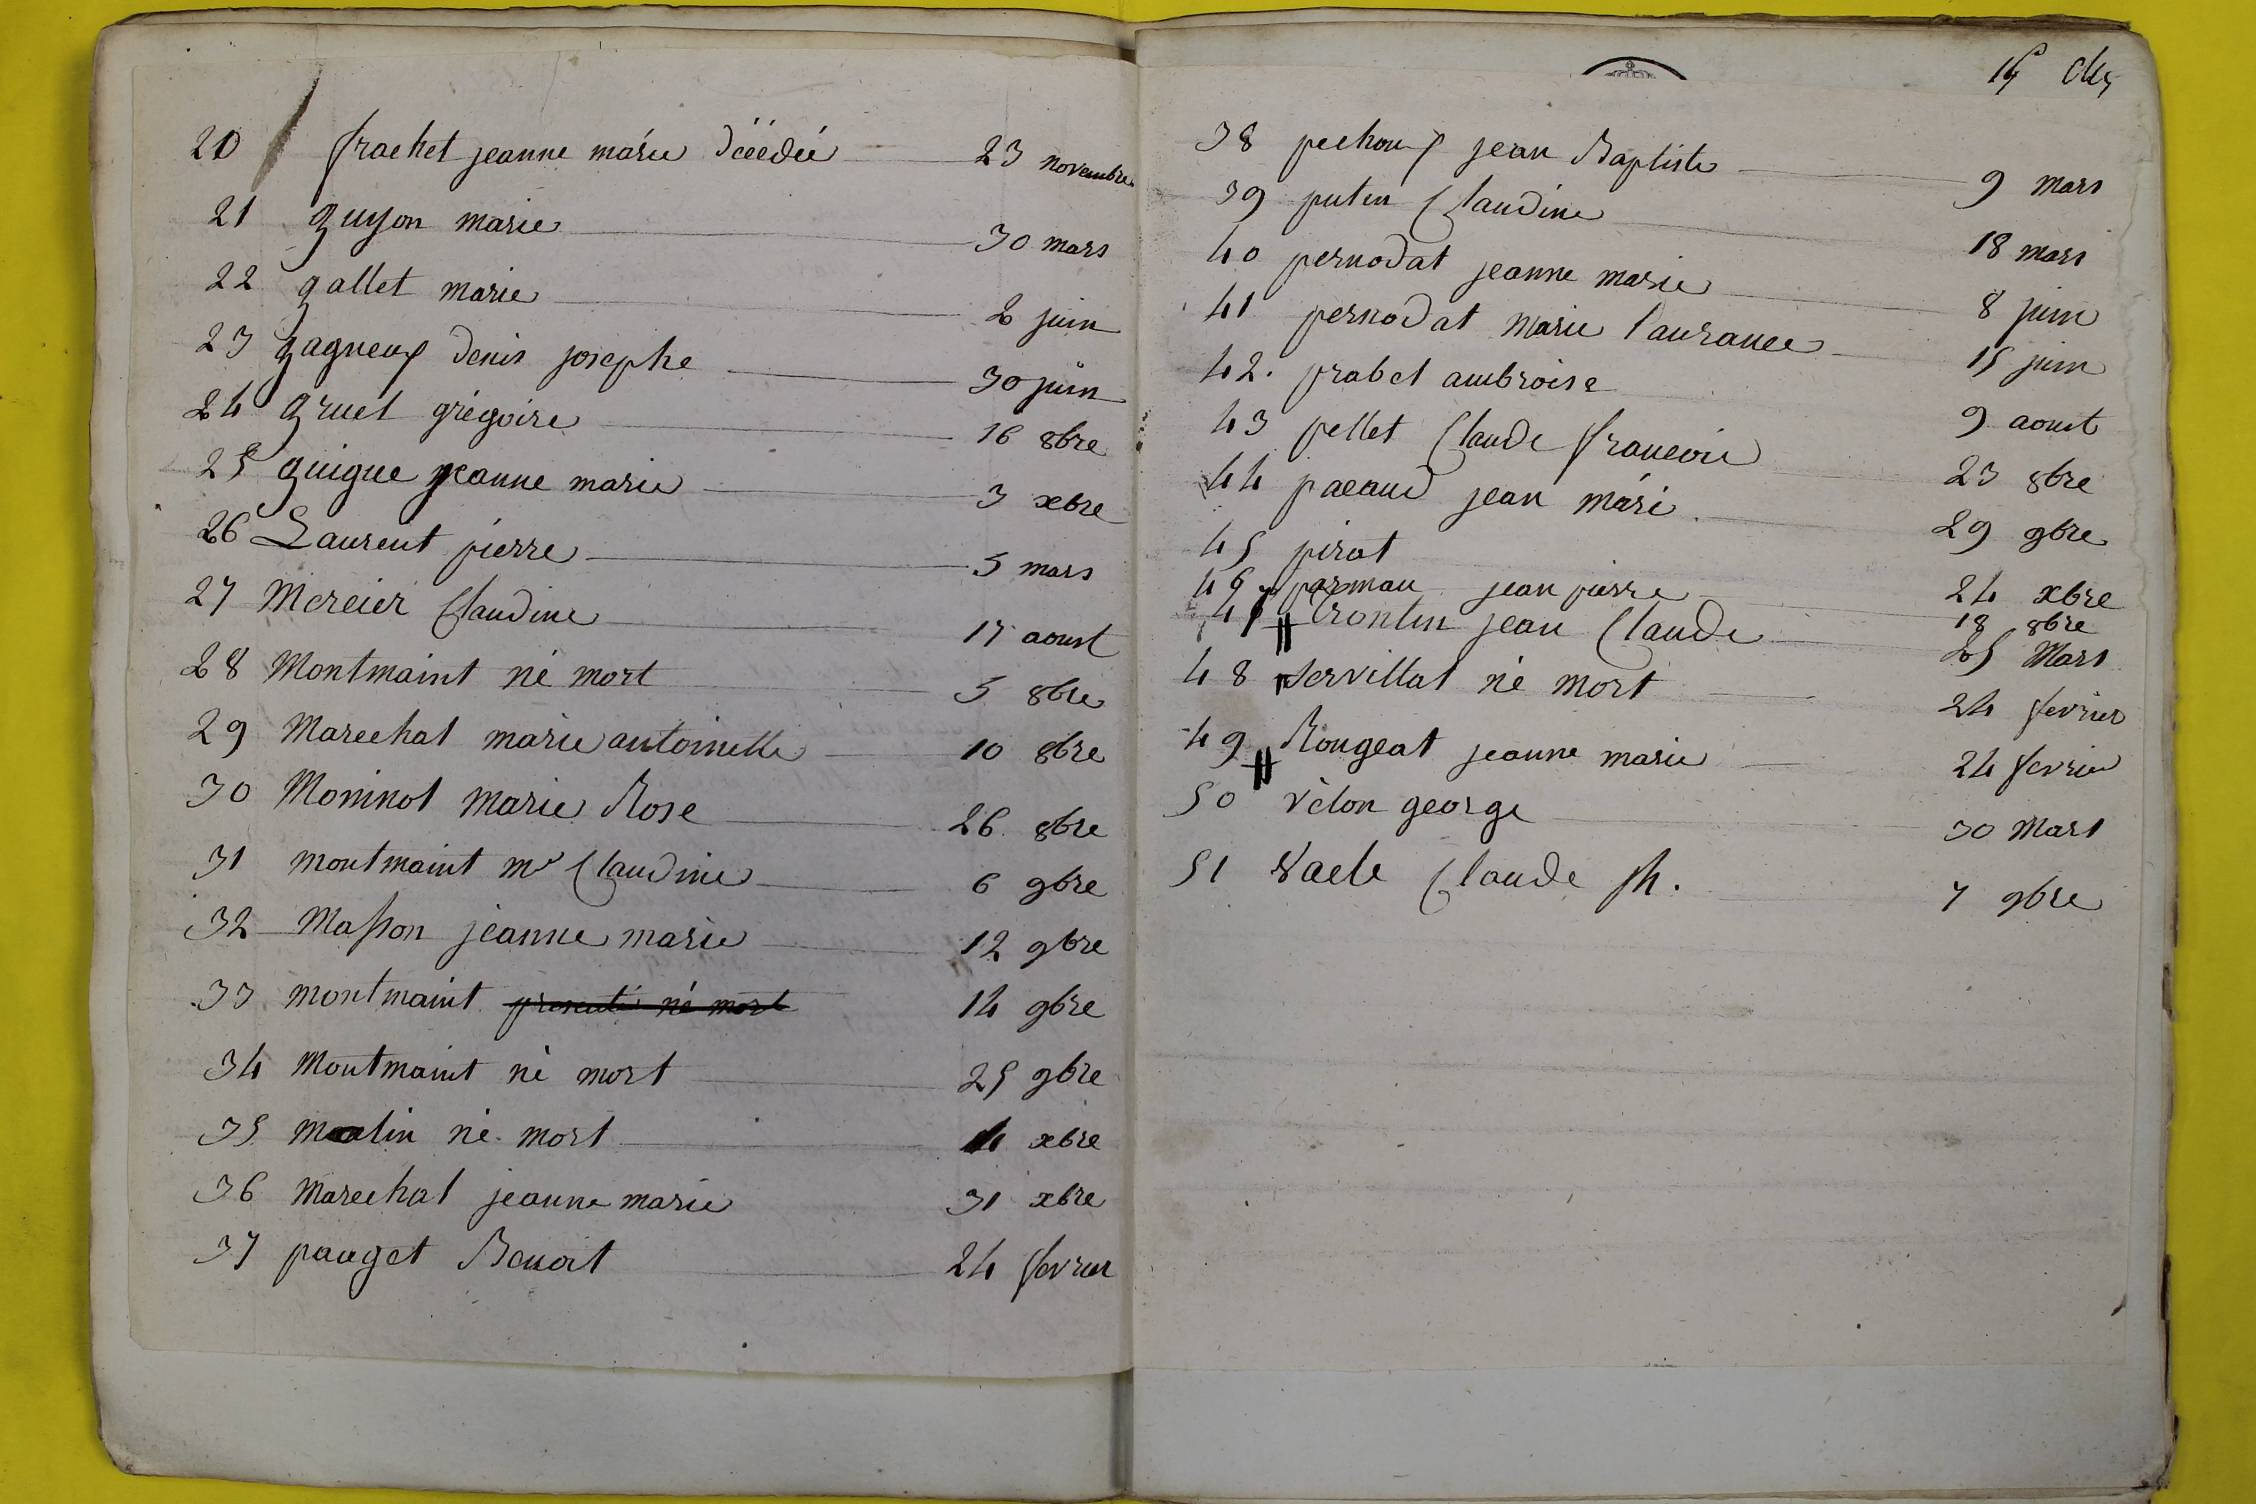 20 frachet jeanne marie décédée 23 novembre
21 guyon marie 30 mars
22 gallet marie 2 juin
23 gagneux denis josephe 30 juin
24 gruel grégoire 16 8bre
25 guigue jeanne marie 3 xbre
26 Laurent pierre 5 mars
27 Mercier Claudine aoust
28 Montmaint né mort 5 8bre
29 Marechal marie antoinette 10 8bre
30 Moninot Marie Rose 26 8bre
31 montmaint me Claudine 6 9bre
32 Masson jeanne marie 12 9bre
33 montmaint né mort 14 9bre
34 Montmaint né mort 25 9bre
35 né mort 4 xbre
36 marechal jeanne marie 31 xbre
37 pauget Benoit 24 fevrier
38 pechoux jean Baptiste 9 mars
39 putin Claudine 18 mars
40 pernodat jeanne marie 8 juin
41 pernodat marie laurance 15 juin
42. prabel ambroise 9 aoust
43 pellet Claude francois 23 8bre
44 pacaud jean mari 29 9bre
45 pirat 24 xbre
46 jean pierre 18 8bre
47 jean Claude 25 Mars
48 servillat né mort 24 fevrier
49 Rougeat jeanne marie 24 fevrier
50 vélon george 30 Mars
51 Claude fh. 7 9bre